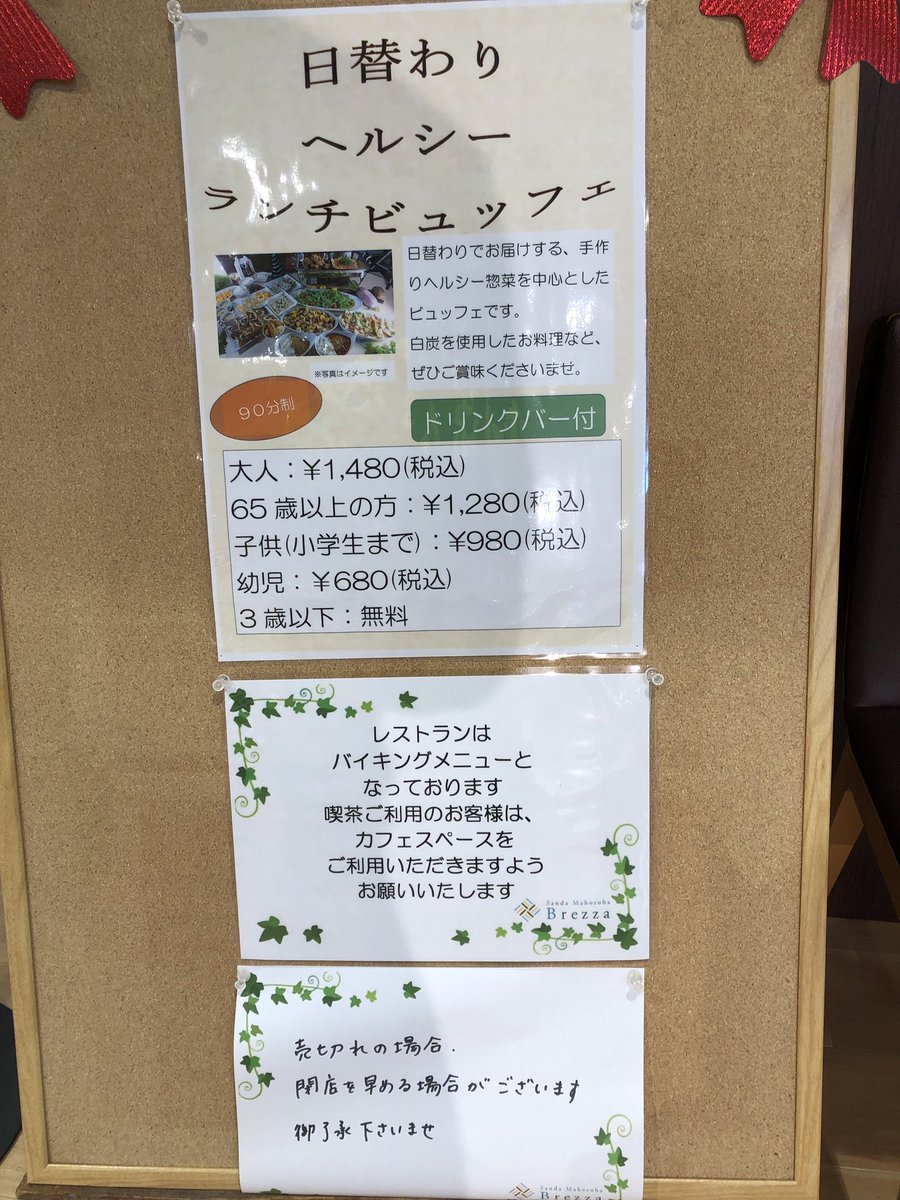 日替わり
ヘルシー
ランチビュッフェ
日替わりでお届けする、手作
りヘルシー惣菜を中心とした
ビュッフェです。
白炭を使用したお料理など、
ぜひご賞味くださいませ。
※写真はイメージです
90分制
ドリンクバー付
大人：¥1,480(税込)
65歳以上の方：¥1,280(税込)
子供(小学生まで)：¥980(税込)
幼児：¥680(税込)
3歳以下：無料
レストランは
バイキングメニューと
なっております
喫茶ご利用のお客様は、
カフェスペースを
ご利用いただきますよう
お願いいたします
Sanda Mahoroba
Brezza
売切れの場合、
閉店を早める場合がございます
御了承下さいませ
Sanda Mahoroba
Brezza